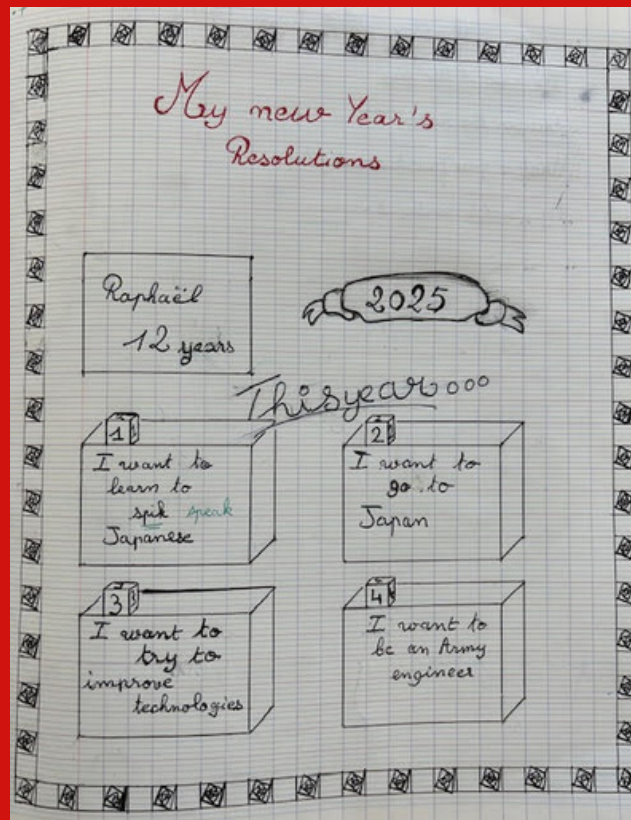 My new Year's
Resolutions
Raphaël
12 years
2025
This year...
1
I want to
learn to
spik speak
Japanese
2
I want to
go to
Japan
3
I want to
try to
improve
technologies
4
I want to
be an Army
engineer